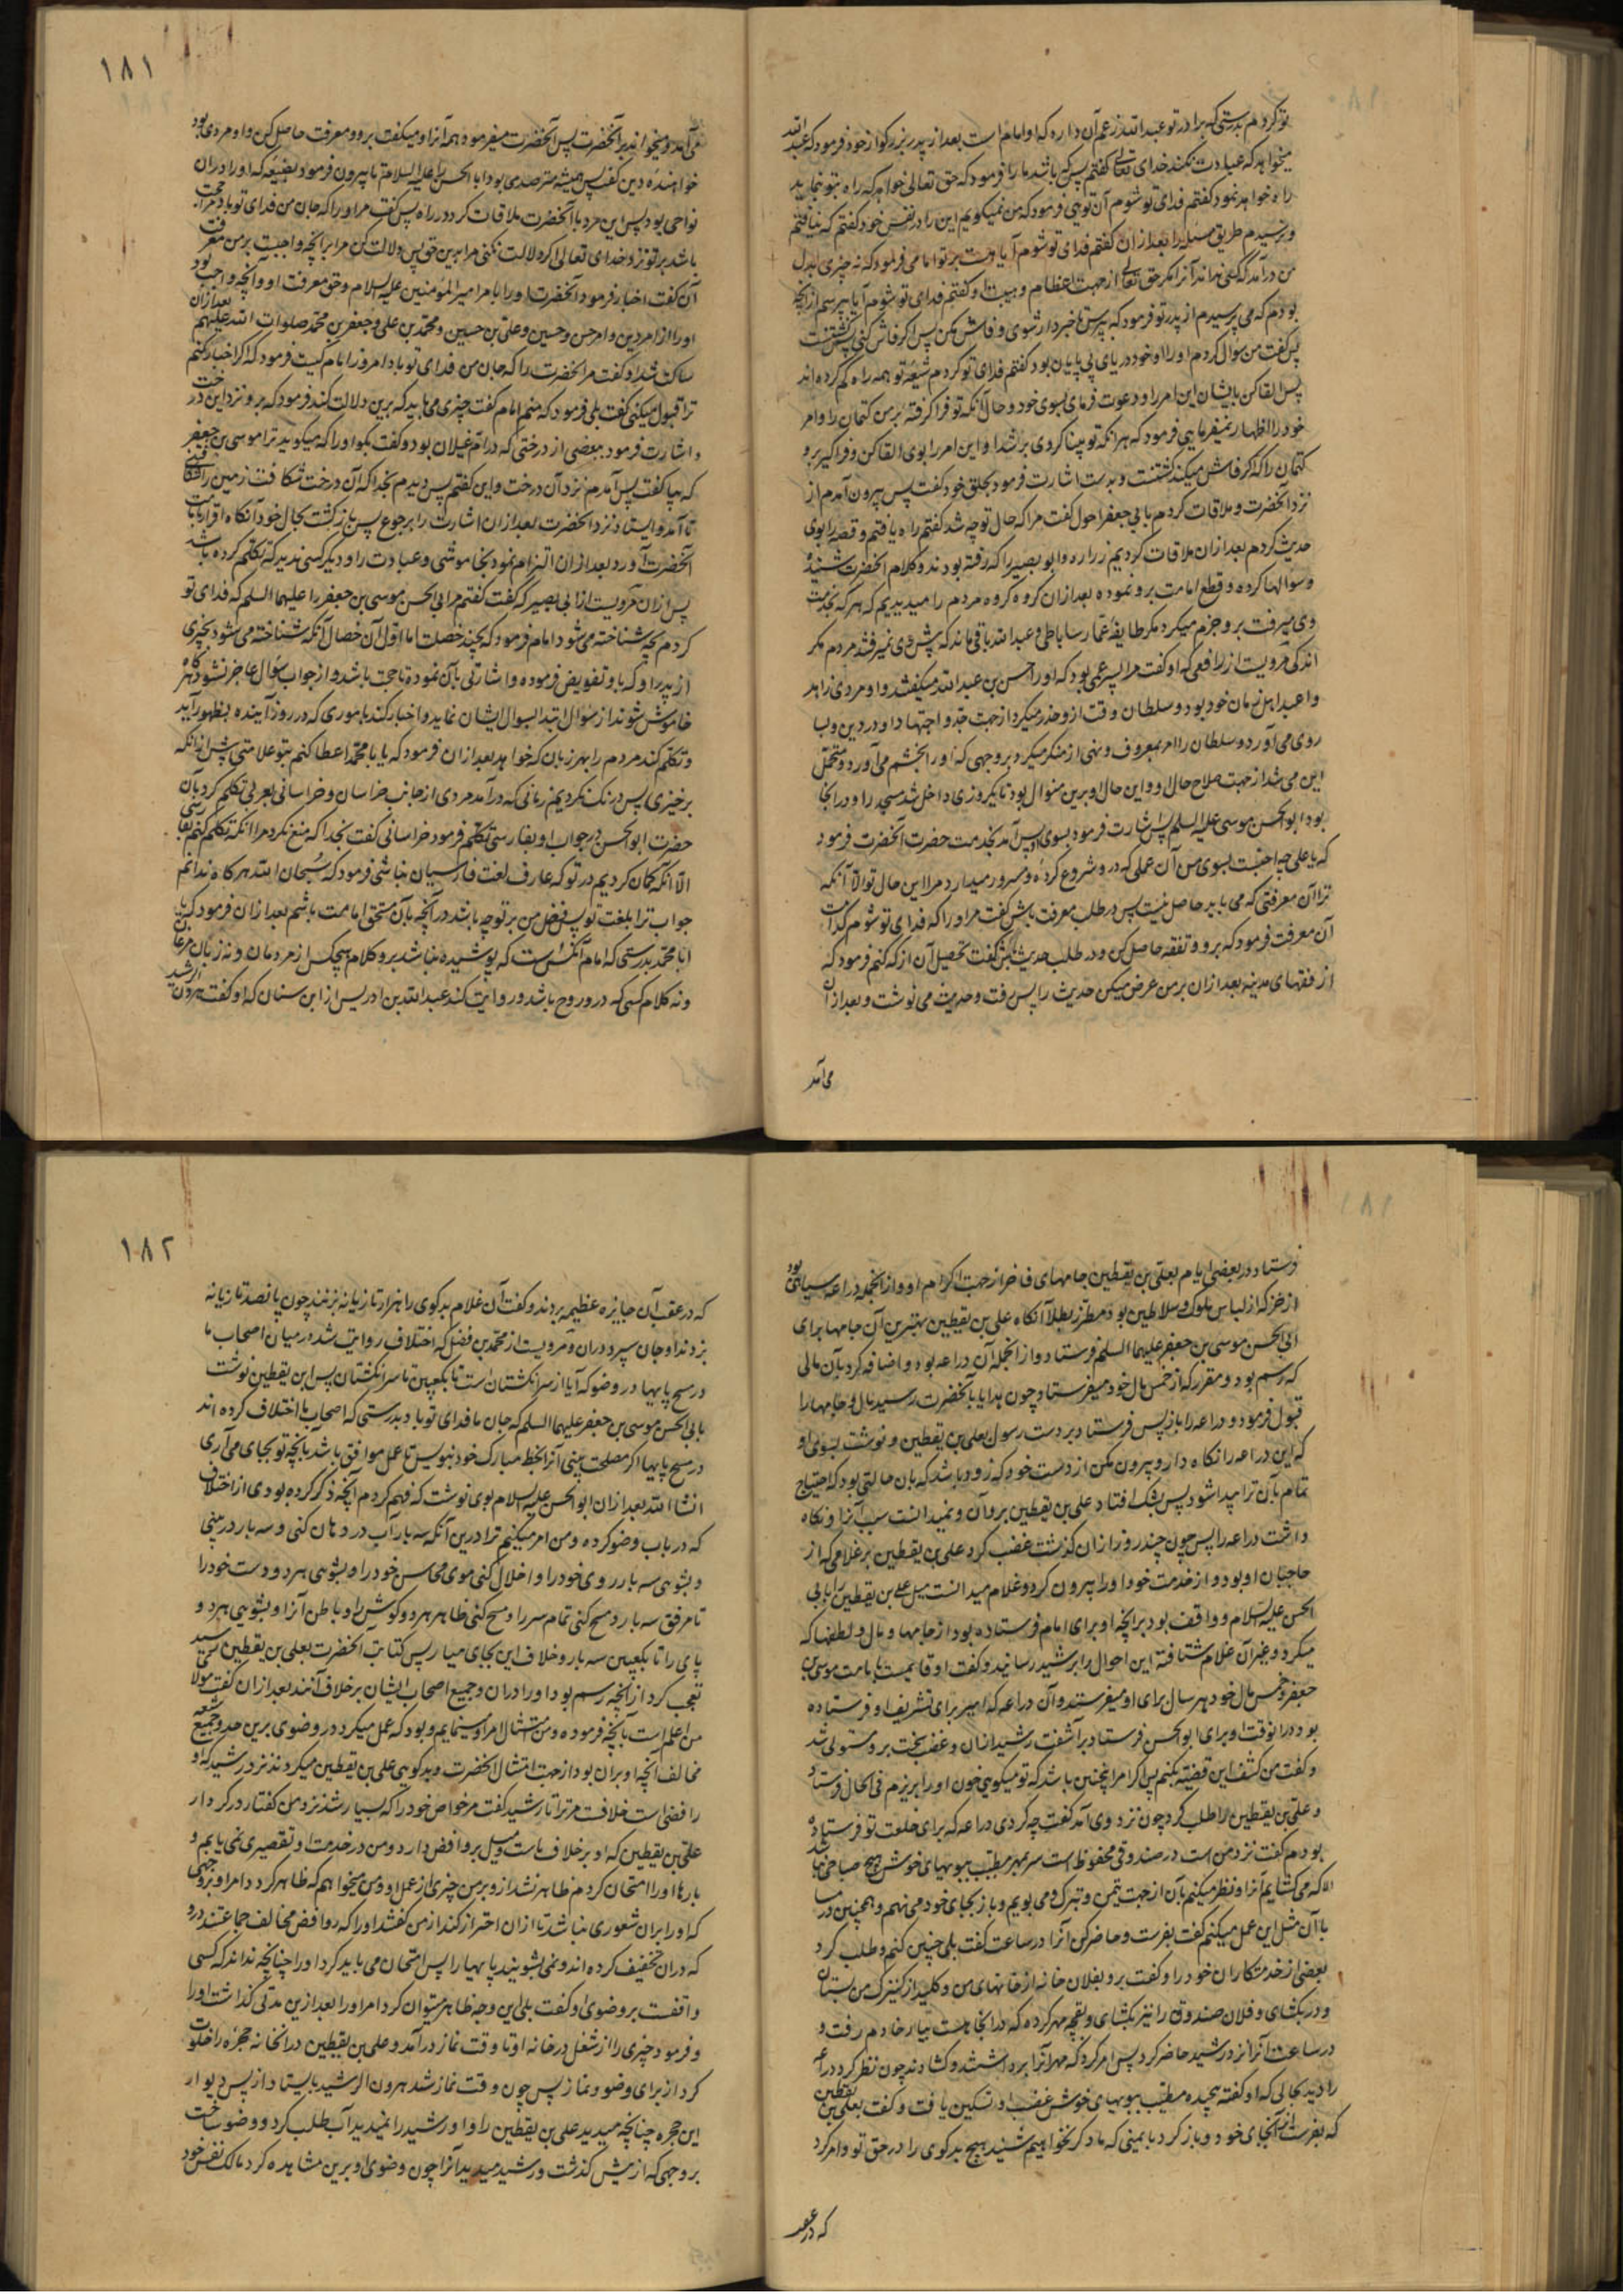 تو کردم بدرستی که برادر تو عبد الله زعم آن دارد که او امام است بعد از پدر بزرگوار خود فرمود که عبد الله
میخواهد که عبادت نکنند خدای تعالی گفتم پس که باشد ما را فرمود که حق تعالی خواهد که راه بتو نماید
راه خواهد نمود گفتم فدای تو شوم آن توئی فرمود که من نمیگویم این را در نفس خود گفتم که نیافتم
و نرسیدم طریق مسئله را بعد از آن گفتم فدای تو شوم آیا هست بر تو امامی فرمود که نه چیزی بدل
من درآمد که کسی نداند آنرا مگر حق تعالی از جهت اعظام و هیبت او گفتم فدای تو شوم آیا بپرسم از آنچه
بودم که می پرسیدم از پدر تو فرمود که بپرس تا خبردار شوی و فاش مکن پس اگر فاش کنی کشتنست
پس گفت من سؤال کردم او را او خود دریای بی پایان بود گفتم فدای تو کردم شیعه تو همه راه گم کرده اند
پس القا کن بایشان این امر را و دعوت فرمای بسوی خود و حال آنکه تو فرا گرفته بر من کتمان را و امر
خود را اظهار نمیفرمایی فرمود که هر آنکه تو پیدا کردی بر شد او این امر را بوی القا کن و فرا گیر برو
کتمان را که اگر فاش میکند کشتنست و بدست اشارت فرمود بحلق خود گفت پس بیرون آمدم از
نزد آنحضرت و ملاقات کردم با بی جعفر احول گفت مرا که حال تو چه شد گفتم راه یافتم و قصه را بوی
حدیث کردم بعد از آن ملاقات کردیم زراره و ابو بصیر را که رفته بودند و کلام آنحضرت شنیده
و سوالها کرده و قطع امامت برو نموده بعد از آن گروه گروه مردم را میدیدیم که هر که بخدمت
وی میرفت برو جزم میکرد مگر طایفه عمار ساباطی و عبد الله باقی ماند که پیش وی نمیرفتند مردم مگر
اندکی مرویست از رافعی که او گفت مرا پسر عمی بود که او را حسن بن عبد الله میگفتند و او مردی زاهد
و اعبد اهل زمان خود بود و سلطان وقت ازو حذر میکرد از جهت جد و اجتهاد او در دین و بسا
روی می آورد و سلطان را امر بمعروف و نهی از منکر میکرد بروجهی که او را بخشم می آورد و متحمل
این می شد از جهت صلاح حال او و این حال او برین منوال بود تا یکروزی داخل شد مسجد را و در آنجا
بود ابو الحسن موسی علیه السلم پس اشارت فرمود بسوی او پس آمد بخدمت حضرت آنحضرت فرمود
که یا علی چه احبست بسوی من آن عملی که در و شروع کرده و مسرور میدارد مرا این حال تو الا آنکه
ترا آن معرفتی که می باید حاصل نیست پس در طلب معرفت باش گفت مر او را که فدای تو شوم کدام است
آن معرفت فرمود که برو و تفقه حاصل کن و در طلب حدیث باش گفت تحصیل آن از که کنم فرمود که
از فقهای مدینه بعد از آن بر من عرض میکن حدیث را پس رفت و حدیث می نوشت و بعد از آن
می آمد
۱۸۱
می آمد و میخواند بر آنحضرت پس آنحضرت میفرمود همه آنرا و میگفت برو و معرفت حاصل کن و او مردی بود
خواهنده دین گفت پس همیشه مترصد می بود ابا الحسن را علیه السلام تا بیرون فرمود بضیعه که او را در آن
نواحی بود پس این مرد با آنحضرت ملاقات کرد در راه پس گفت مر او را که جان من فدای تو باد مرا حجت
باشد بر تو نزد خدای تعالی اگر دلالت نکنی مرا برین حق پس دلالت کن مرا بر آنچه واجبست بر من معرفت
آن گفت اخبار فرمود آنحضرت او را بامر امیر المؤمنین علیه السلام و حق معرفت او و آنچه واجب بود
او را از امر دین و امر حسن و حسین و علی بن حسین و محمد بن علی و جعفر بن محمد صلوات الله علیهم بعد از آن
ساکت شد او گفت مر آنحضرت را که جان من فدای تو باد امروز امام کیست فرمود که اگر اخبار کنم
ترا قبول میکنی گفت بلی فرمود که منم امام گفت چیزی می باید که برین دلالت کند فرمود که برو نزد این درخت
و اشارت فرمود ببعضی از درختی که در ام غیلان بود و گفت بگو او را که میگوید ترا موسی بن جعفر
که بیا گفت پس آمدم نزد آن درخت و این گفتم پس دیدم بخدا که آن درخت شکافت زمین را شکافتنی
تا آمد و ایستاد نزد آنحضرت بعد از آن اشارت را برجوع پس بازگشت بحال خود آنگاه اقرار بامامت
آنحضرت آورد بعد از آن التزام نمود بخاموشی و عبادت را و دیگر کسی ندید که تکلم کرده باشد
پس از آن مرویست از ابی بصیر که گفت گفتم مر ابی الحسن موسی بن جعفر را علیهما السلم که فدای تو
کردم بچه شناخته می شود امام فرمود که بچند خصلت اما اول آن خصال آنکه شناخته می شود بچیزی
از پدر او که باو تفویض فرموده و اشارتی بآن نموده تا حجت باشد و از جواب سؤال عاجز نشود و گاه
خاموش شوند از سؤال ابتدا بسوال ایشان نماید و اخبار کند باموری که در روز آینده بظهور آید
و تکلم کند مردم را بهر زبان که خواهد بعد از آن فرمود که یا با محمد اعطا کنم بتو علامتی پیش از آنکه
برخیزی پس درنگ نکردیم زمانی که درآمد مردی از جانب خراسان و خراسانی بعربی تکلم کرد بآن
حضرت ابو الحسن در جواب او بفارسی تکلم فرمود خراسانی گفت بخدا که منع نکرد مرا آنکه تکلم کنم بفارسی
الا آنکه گمان کردیم در تو که عارف لغت فارسیان نباشی فرمود که سبحان الله هرگاه ندانم
جواب ترا بلغت تو پس فضل من بر تو چه باشد در آنچه بآن مستحق امامت باشم بعد از آن فرمود که یا
ابا محمد بدرستی که امام آنکس است که پوشیده نباشد برو کلام هیچکس از مردمان و نه زبان مرغان
و نه کلام کسی که درو روح باشد و روایت کند عبد الله بن ادریس از ابن سنان که او گفت هرون الرشید
فرستاد در بعضی ایام بعلی بن یقطین جامهای فاخر از جهت اکرام او و از آنجمله دراعه سیاهی بود
از خز که از لباس ملوک و سلاطین بود مطرز بطلا آنگاه علی بن یقطین بهترین آن جامها برای
ابی الحسن موسی بن جعفر علیهما السلم فرستاد و از آنجمله آن دراعه بود و اضافه کرد بآن مالی
که رسم بود و مقرر که از خمس مال خود میفرستاد چون هدایا بآنحضرت رسید مال و جامها را
قبول فرمود و دراعه را باز پس فرستاد بر دست رسول بعلی بن یقطین و نوشت بسوی او
که این دراعه را نگاه دار و بیرون مکن از دست خود که زود باشد که بآن حالتی بود که احتیاج
تمام بآن ترا پیدا شود پس بشک افتاد علی بن یقطین برو آن و نمیدانست سبب آنرا و نگاه
داشت دراعه را پس چون چند روز از آن گذشت غضب کرد علی بن یقطین بر غلامی که از
حاجبان او بود و از خدمت خود او را بیرون کرد و غلام میدانست میل علی بن یقطین بابی
الحسن علیه السلام و واقف بود بر آنچه او برای امام فرستاده بود از جامها و مال و لطفها که
میکرد و غیر آن غلام شتافته این احوال را برشید رسانید و گفت او قایلست بامامت موسی بن
جعفر و خمس مال خود هر سال برای او میفرستد و آن دراعه که امیر برای تشریف او فرستاده
بود در آنوقت او برای ابو الحسن فرستاد برآشفت رشید از آن و غضب سخت برو مستولی شد
و گفت من کشف این قضیه بکنم پس اگر امر اینچنین باشد که تو میگویی خون او را بریزم فی الحال فرستاد
و علی بن یقطین را طلب کرد چون نزد وی آمد گفت چه کردی دراعه که برای خلعت تو فرستاده
بودم گفت نزد منست در صندوقی محفوظ است سر بمهر مطیب ببویهای خوش هیچ صباحی نباشد
الا که می گشایم آنرا و نظر میکنم بآن از جهت تیمن و تبرک و می بویم و باز بجای خود می نهم و همچنین در مسا
با آن مثل این عمل میکنم گفت بفرست و حاضر کن آنرا در ساعت گفت بلی چنین کنم و طلب کرد
بعضی از خدمتکاران خود را و گفت برو بفلان خانه از خانهای من و کلید از کنیزک من بستان
و در بگشای و فلان صندوق را نیز بگشای و بقچه مهر کرده که در آنجا هست بیار خادم رفت و
در ساعت آنرا نزد رشید حاضر کرد پس امر کرد که مهر آنرا برداشتند و گشادند چون نظر کرد دراعه
را دید بحالی که او گفته پیچیده مطیب ببویهای خوش غضب او تسکین یافت و گفت بعلی بن یقطین
که بفرست این آنجای خود و باز گرد بایمنی که ما دگر نخواهیم شنید هیچ بدگوی را در حق تو و امر کرد
که در عقب
۱۸۲
که در عقب آن جایزه عظیمه بردند و گفت آن غلام بدگوی را هزار تازیانه بزنند چون پانصد تازیانه
بزدند او جان سپرد در آن و مرویست از محمد بن فضل که اختلاف روایت شد در میان اصحاب ما
در مسح پایها در وضو که آیا از سر انگشتان است تا بکعبین تا سر انگشتان پس ابن یقطین نوشت
بابی الحسن موسی بن جعفر علیهما السلم که جان ما فدای تو باد بدرستی که اصحاب ما اختلاف کرده اند
در مسح پایها اگر مصلحت بینی آنرا بخط مبارک خود بنویس تا عمل موافق باشد بآنچه تو بجای می آری
انشا الله بعد از آن ابو الحسن علیه السلام بوی نوشت که فهم کردم آنچه ذکر کرده بودی از اختلاف
که در باب وضو کرده و من امر میکنم ترا درین آنکه سه بار آب در دهان کنی و سه بار در بینی
و بشویی سه بار روی خود را و اخلال کنی موی محاسن خود را و بشویی هر دو دست خود را
تا مرفق سه بار و مسح کنی تمام سر را و مسح کنی ظاهر هر دو گوش را و باطن آنرا و بشویی هر دو
پای را تا بکعبین سه بار و خلاف این بجای میار پس کتابت آنحضرت بعلی بن یقطین رسید
تعجب کرد از آنچه رسم بود او را در آن و جمیع اصحاب ایشان بر خلاف آنند بعد از آن گفت مولای
من اعلم است بآنچه فرموده و من امتثال امر او مینمایم و بود که عمل میکرد در وضوی برین حد و جمیع شیعه
مخالف آنچه او بر آن بود از جهت امتثال آنحضرت و بدگویی علی بن یقطین میکردند نزد رشید که او
رافضی است خلافت مر ترا تا رشید گفت مر خواص خود را که بسیار شد نزد من گفتار در کردار
علی بن یقطین که او بر خلاف ماست و میل بروافض دارد و من در خدمت او تقصیری نمی یابم و
بارها او را امتحان کردم ظاهر نشد ازو بر من چیزی از عمل او و من میخواهم که ظاهر گردد امر او بروجهی
که او را بر آن شعوری نباشد تا از آن احتراز کند از من گفتند او را که روافض مخالف جماعتند در وضو
که در آن تخفیف کرده اند و نمی شویند پایها را پس امتحان می باید کرد او را چنانچه نداند که کسی
واقفست بر وضوی او گفت بلی این وجه ظاهر میتوان کرد امر او را بعد از این مدتی گذاشت او را
و فرمود چیزی را از شغل در خانه او تا وقت نماز درآمد و علی بن یقطین در آنخانه حجره را خلوت
کرد از برای وضو و نماز پس چون وقت نماز شد هرون الرشید بایستاد از پس دیوار
این حجره چنانچه میدید علی بن یقطین را و او رشید را نمیدید آب طلب کرد و وضو ساخت
بروجهی که از پیش گذشت و رشید میدید آنرا چون وضوی او برین مشاهده کرد مالک نفس خود